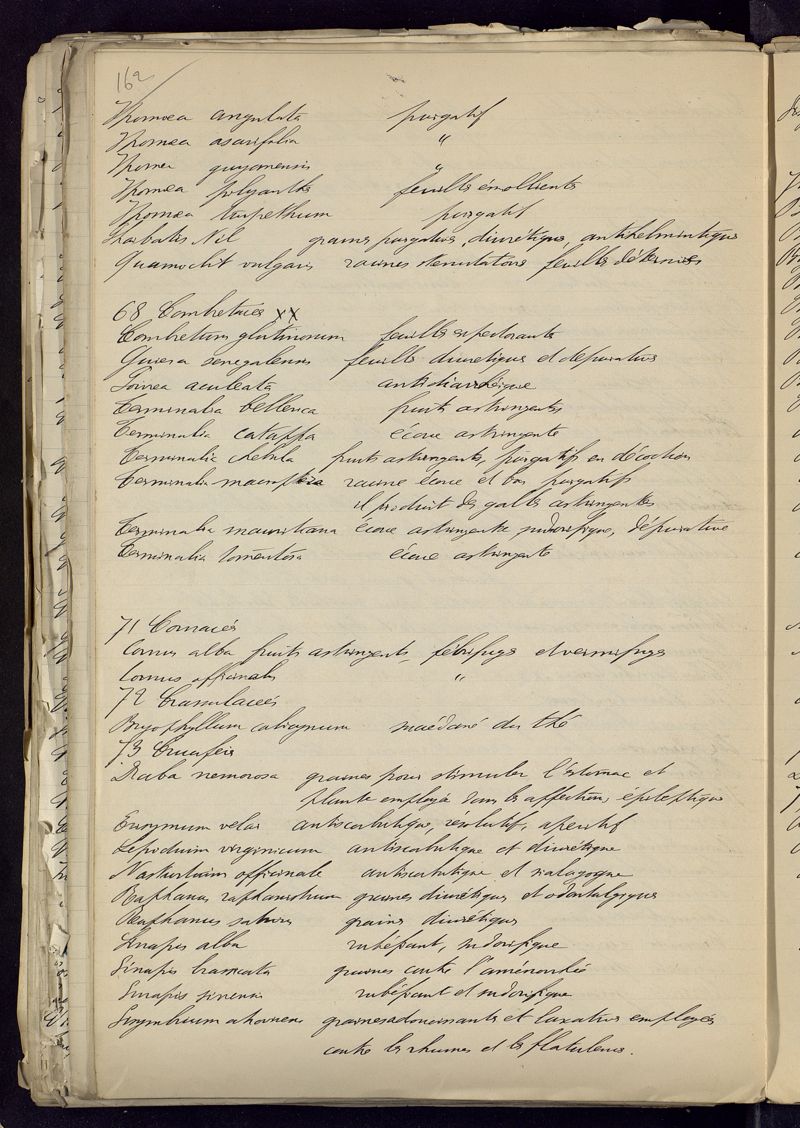 162
Ipomœa angulata purgatif
Ipomœa asarifolia "
Ipomea guyanensis "
Ipomœa polyantha feuilles émollientes
Ipomœa turpethum purgatif
Nil graines purgatives, diurétiques, antihelmintiques
Quamoclit vulgaris racines sternutatoires feuilles détersives
68 Combretacés xx
Combretum glutinosum feuilles expectorantes
Guiera senegalensis feuilles diurétiques et dépuratives
aculeata antidiarrhéique
Terminalia bellerica fruits astringents
Terminalia catappa écorce astringente
Terminalia chebula fruits astringents, purgatifs en décoction
Terminalia macroptera racine écorce et bois purgatifs
il produit des galles astringentes
Terminalia mauritiana écorce astringente, sudorifique, dépurative
Terminalia tomentosa écorce astringente
71 Cornacés
Cornus alba fruits astringents, fébrifuges et vermifuges
Cornus officinalis "
72 Crassulacées
Bryophyllum calicynum succédané du thé
73 Crucifers
Draba nemorosa graines pour stimuler l'estomac et
plante employée dans les affections épileptiques
Erysymum velar antiscorbutique, résolutif, apéritif
Lepidium virginicum antiscorbutique et diurétique
Nasturtium officinale antiscorbutique et sialagogue
Raphanus raphanistrum graines diurétiques et odontalgiques
Raphanus sativus graines diurétiques
Sinapis alba rubéfiant, sudorifique
Sinapis brassicata graines contre l'aménorrhée
Sinapis sinensis rubéfiant et sudorifique
Sisymbrium graines adoucissantes et laxatives employées
contre les rhumes et les flatulences.